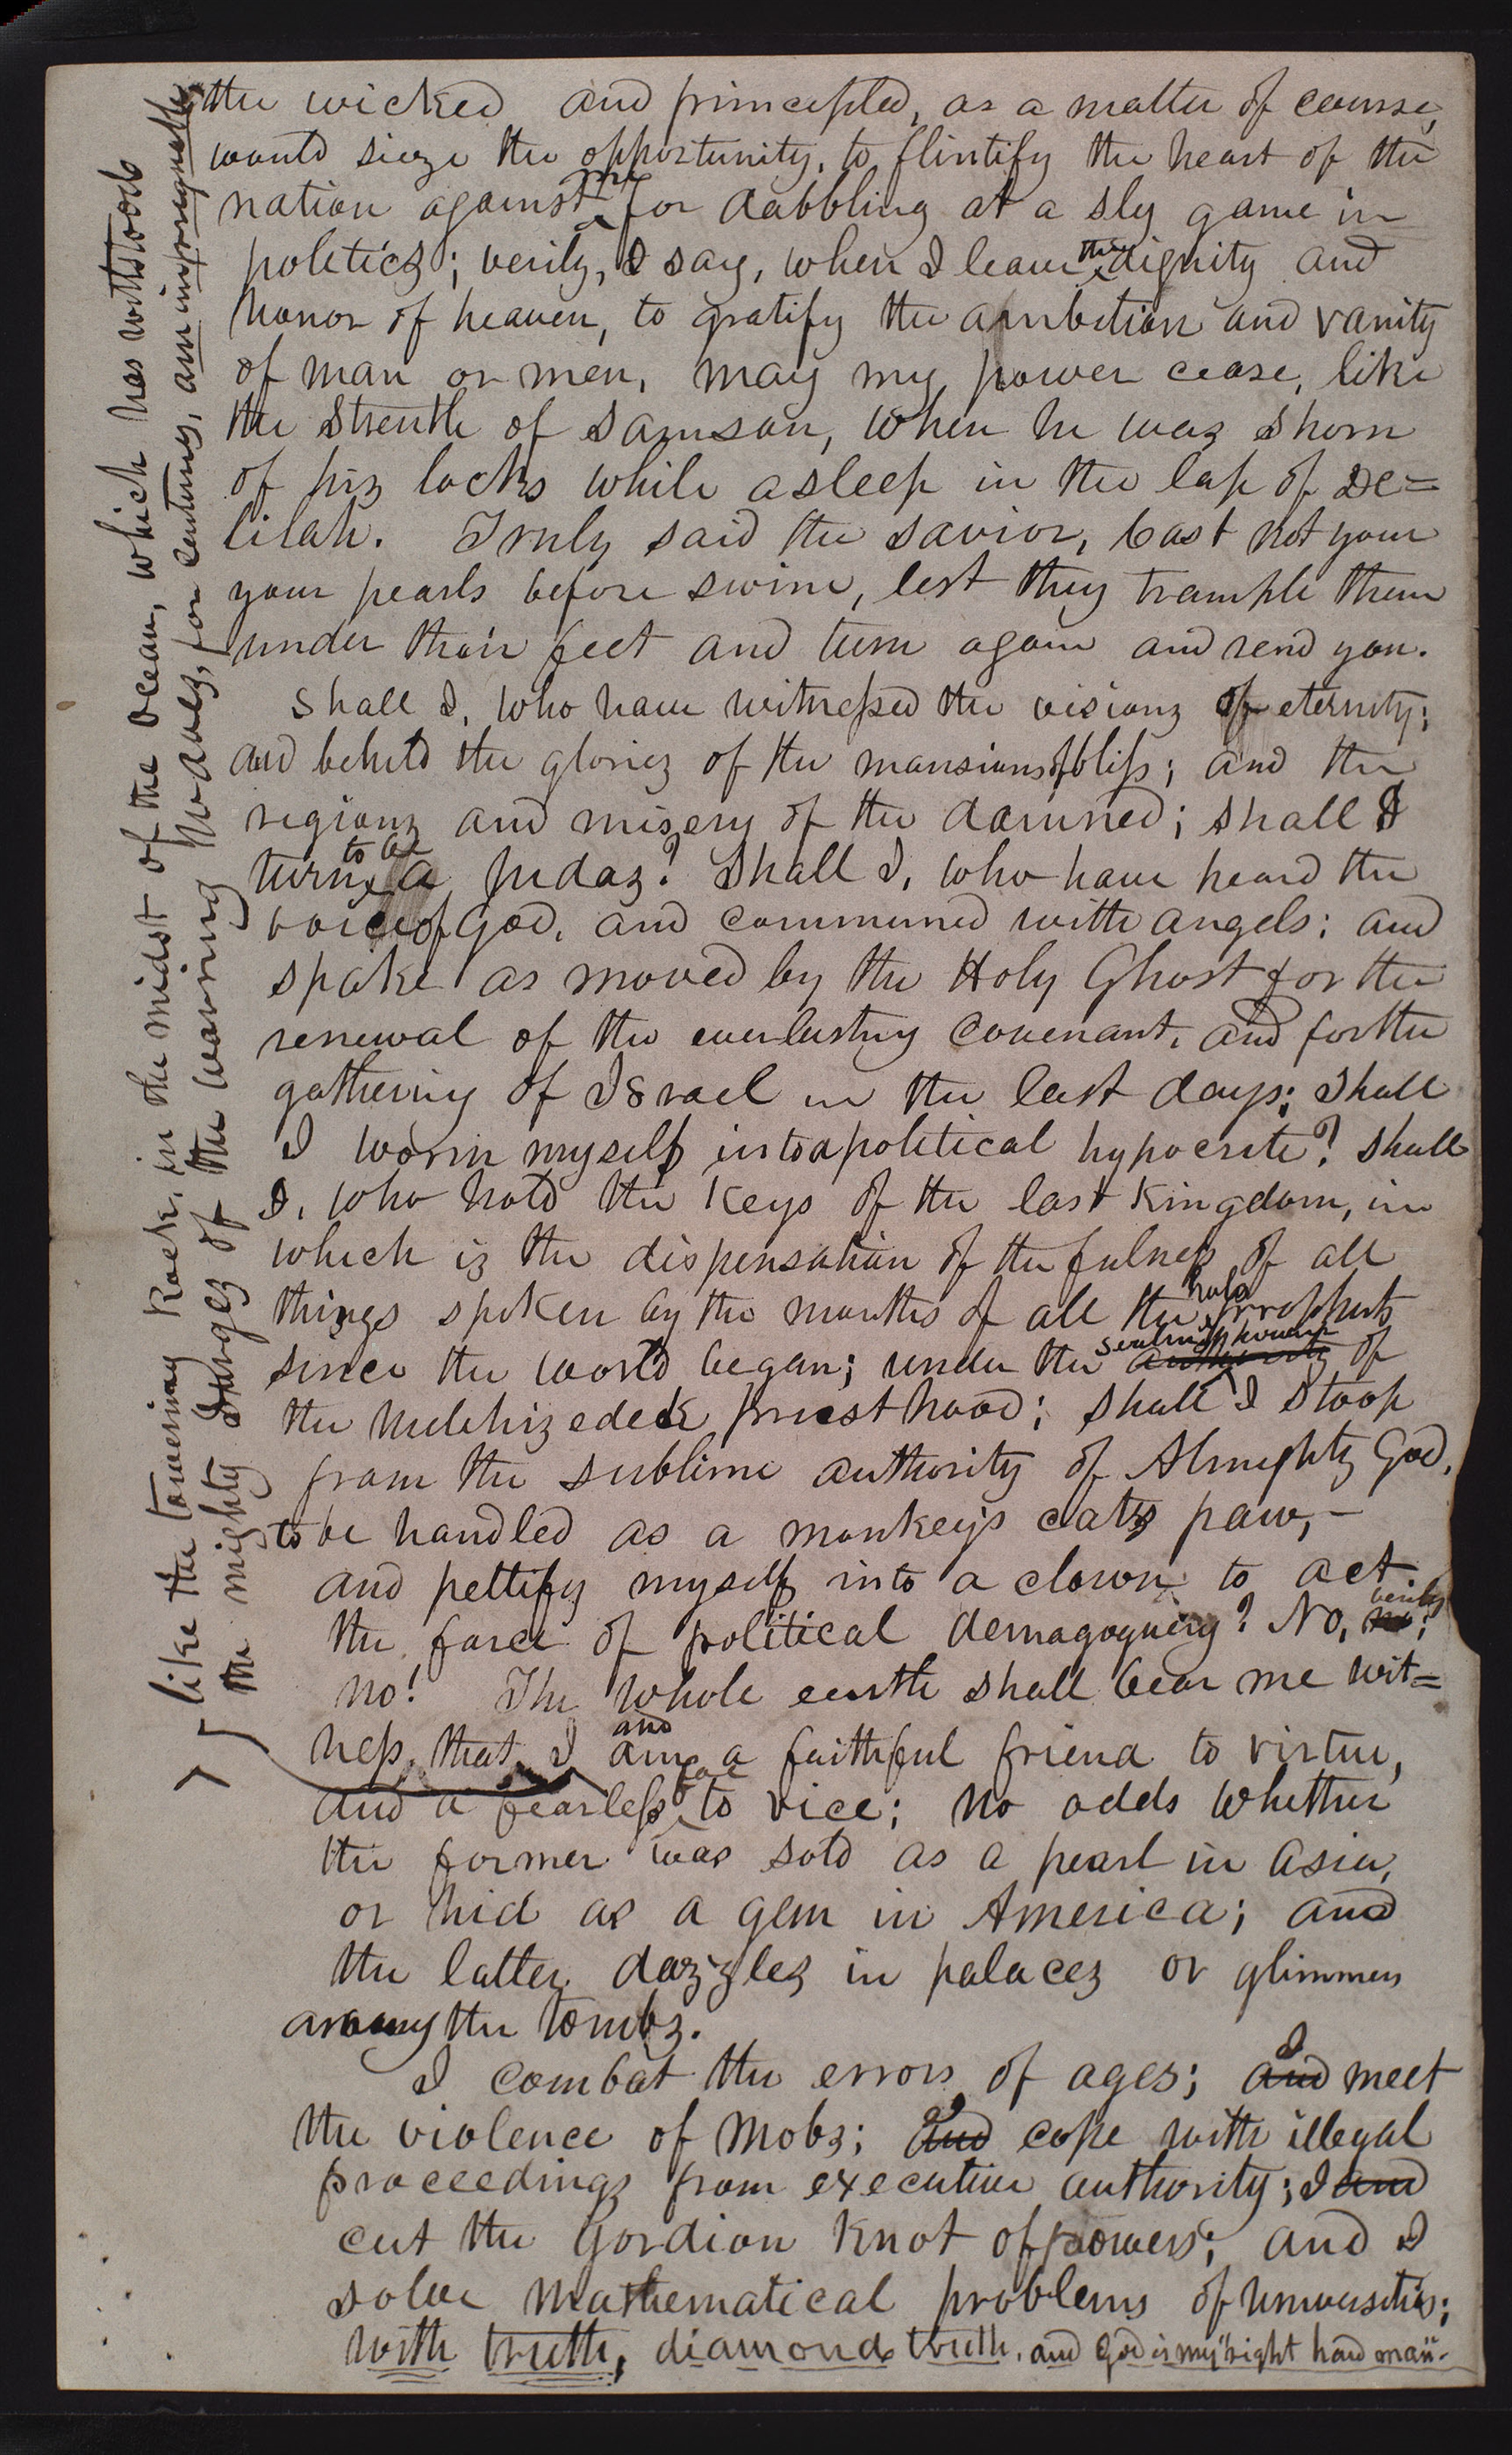 the wicked and principled, as a matter of course,
would sieze the opportunity, to flintify the heart of the
me
nation against for dabbling at a sly game in
the
politicz; verily, I say, when I leave dignity and
honor of heaven, to gratify the ambition and vanity
of man or men, may my power cease, like
the strenth of Samson, when he waz shorn
of hiz locks while asleep in the lap of De=
lilah. Truly said the Savior, Cast not your
your pearls before swine, lest they trample them
under their feet and turn again and rend you.
Shall I, who have witnessed the visionz of eternity;
and beheld the gloriez of the mansions of bliss; and the
regionz and misery of the damned; shall I
to be
turn a Judaz? Shall I, who have heard the
voice of God, and communed with angels; and
spake as moved by the Holy Ghost for the
renewal of the everlasting covenant, and for the
gathering of Israel in the last days; shall
I worm myself into a political hypocrite? Shall
I, who hold the keys of the last kingdom, in
which iz the dispensation of the fulness of all
holy
things spoken by the mouths of all the prophets
sealing power
since the world began; under the authority of
the Melchizedek priesthood; shall I stoop
from the sublime authority of Almighty God,
to be handled as a monkey's catz paw,-
and pettify myself into a clown to act
verily
the farce of political demagoguery? No, no;
no! The whole earth shall bear me wit=
and
ness, that I am a faithful friend to virtue,
foe
and a fearless to vice; no odds whether
the former was sold as a pearl in Asia,
or hid as a gem in America; and
the latter dazzlez in palacez or glimmers
among the tombz.
I
I combat the errors of ages; and meet
I
the violence of mobz; and cope with illegal
proceedingz from executive authority; I and
cut the Gordian knot of powers; and I
solve mathematical problems of universities;
with truth, diamond truth, and God is my "right hand man".
like the towering rock, in the midst of the ocean, which has withstood
the mighty surgez of the warring wavez, for centuries, am impregnable